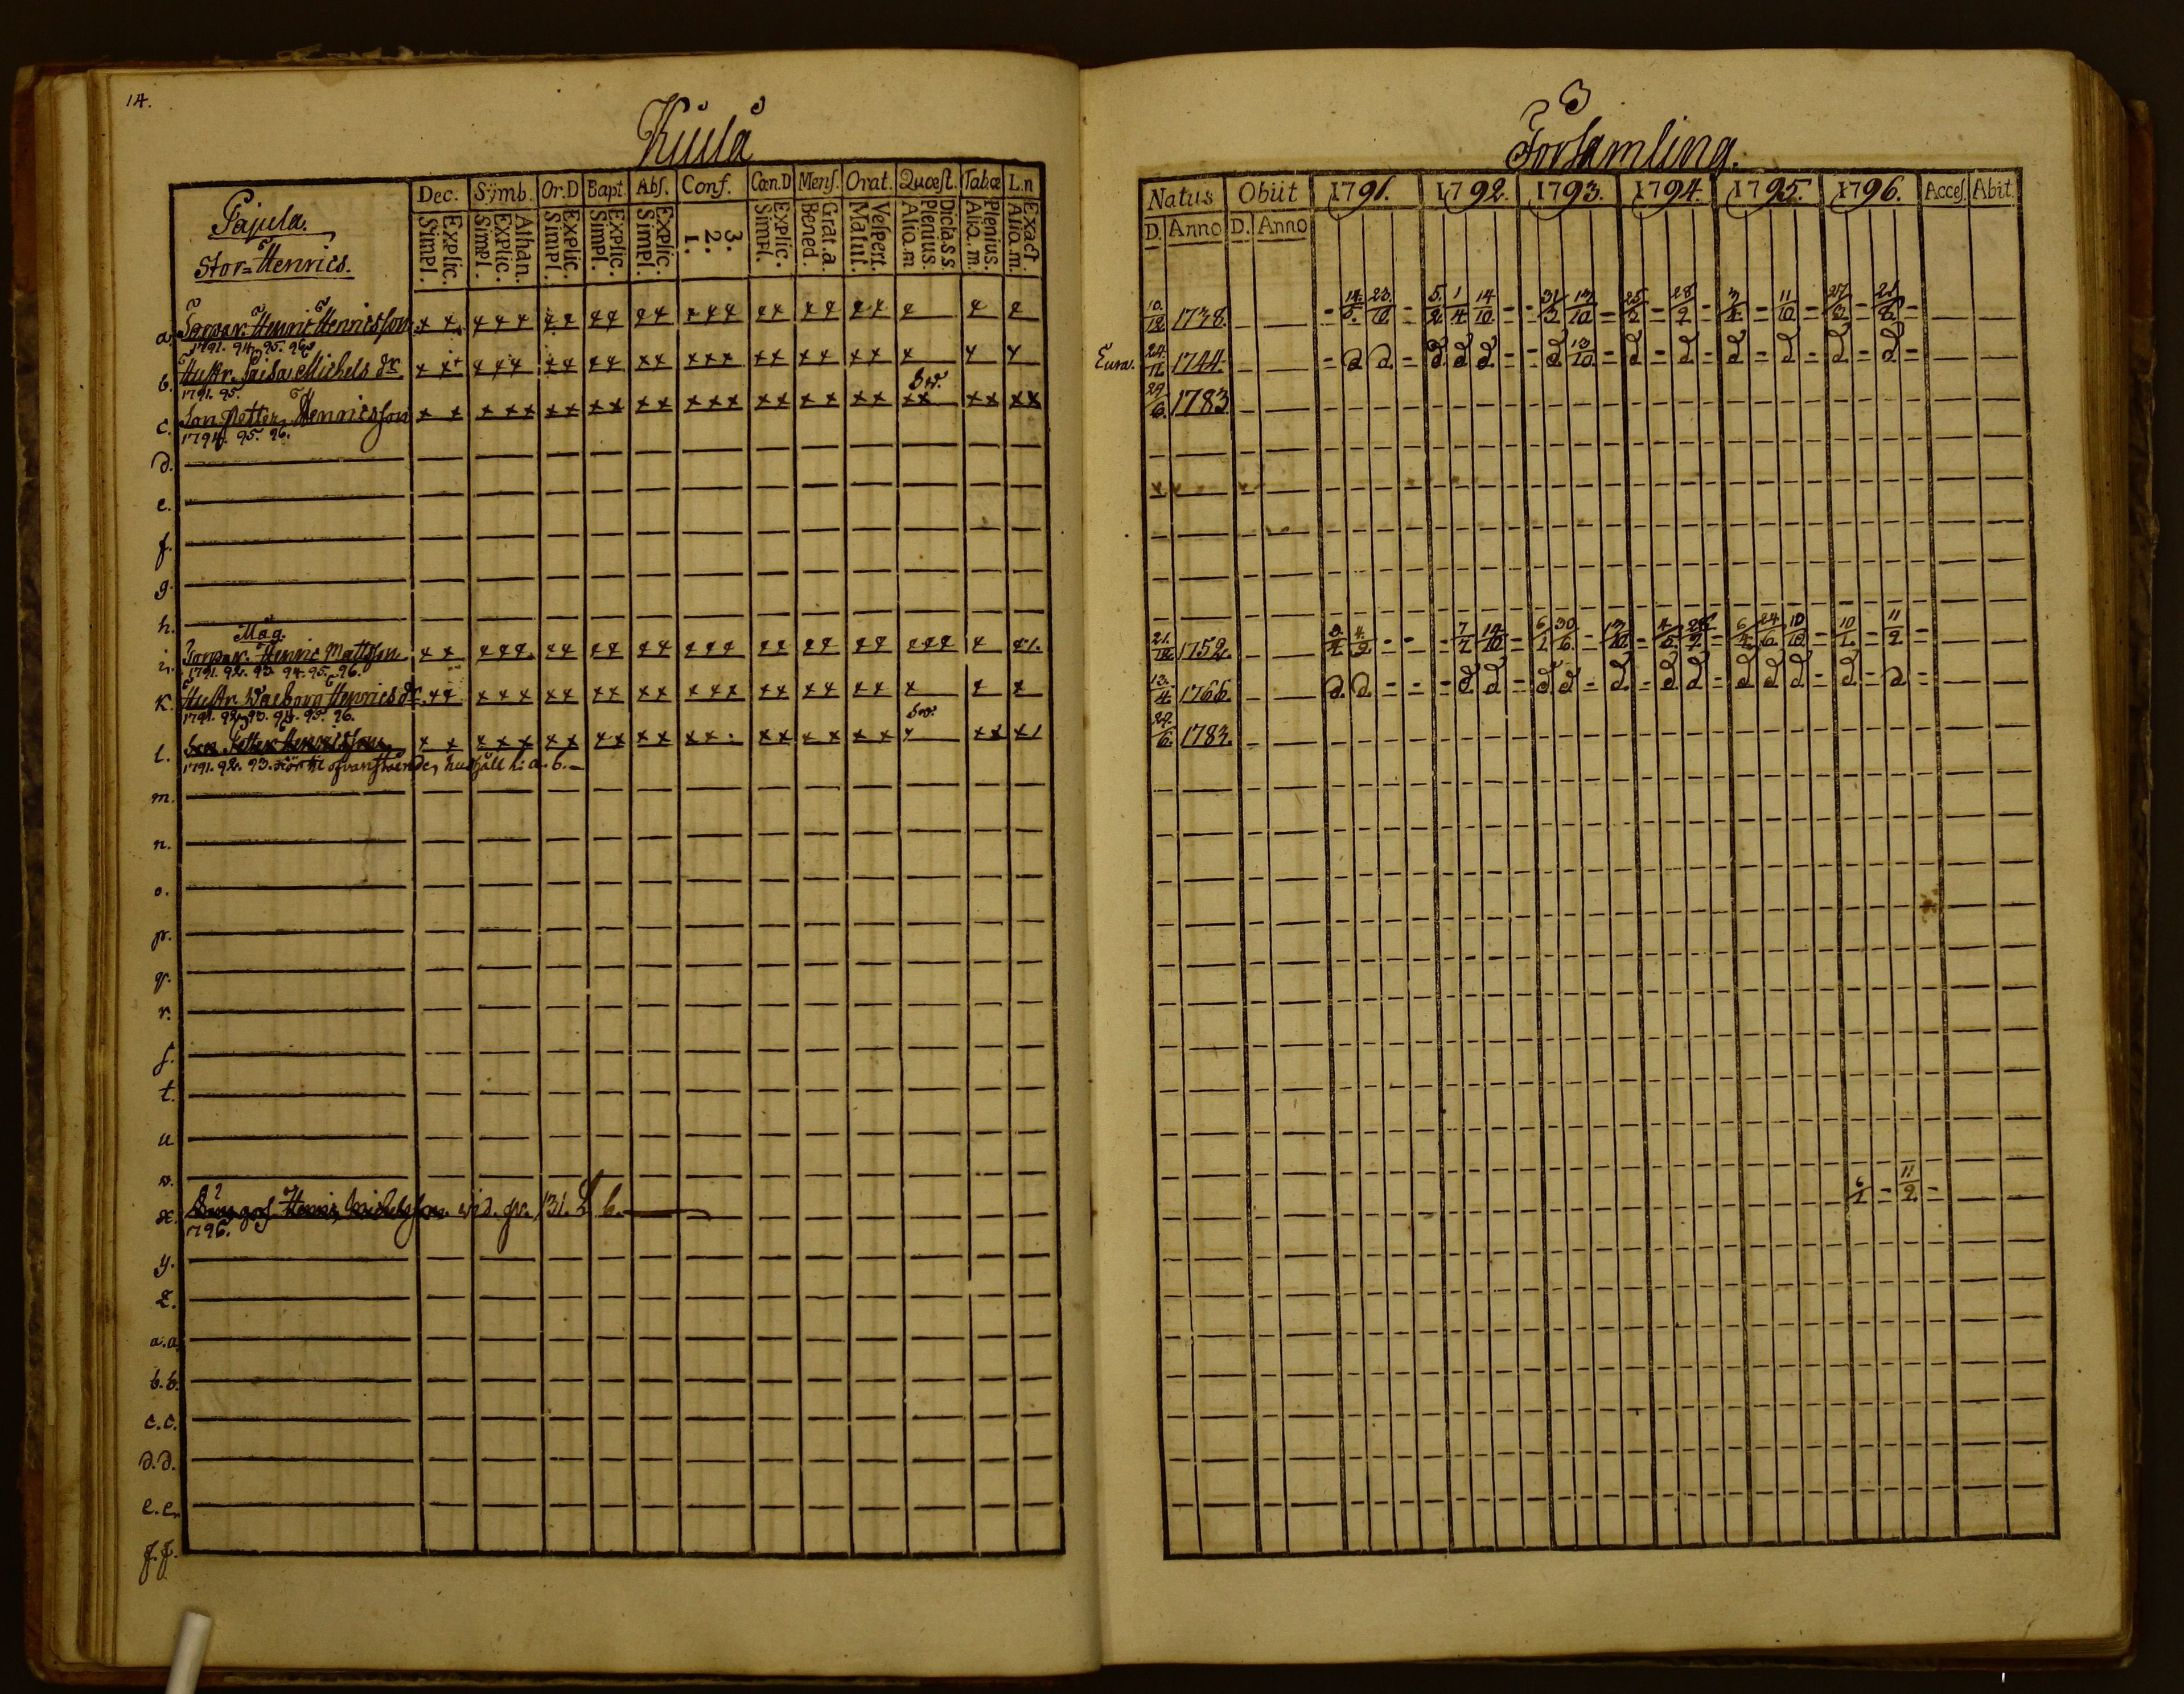 14.
Kiula
Församling.
Pajula.
Stor=Henrics.
Dec. Symb. Or.D Bapt. Abs. Conf. Cœn.D Mens. Orat. Quæst. Tabæ L.n
Simpl. Explic. Simpl. Explic. Athan. Simpl. Explic. Simpl. Explic. Simpl. Explic. 1. 2. 3. Simpl. Explic. Bened. Grat.a. Matut. Vespert. Alia.m Plenius. Dicta.s.s. Alia.m. Plenius. Alia.m. Exact.
Natus Obiit 1791. 1792. 1793. 1794. 1795. 1796. Acces. Abit.
D. Anno D. Anno
a. Torpar. Henric Henricsson 10/12 1738. 14/5. 23/10 5/2. 1/4 14/10 31/3 13/10 25/5 28/9 3/4 11/10 27/3
1791. 94. 95. 96
b. Hustr. Caisa Michels dr. Eura. 24/11 1744. 13/10
1791. 95.
c. Son Petter Henricsson Sv. 29/6. 1783
1794. 95. 96.
d.
e.
f.
g.
h.
Måg.
i. Torpar. Henric Mattsson 21/12 1752. 7/2 14/10 6/1 30/6 6/4 24/6. 10/10 10/1 11/2
1791. 92. 93. 94. 95. 96.
k. Hustr. Walborg Henrics dr. 13/4. 1766.
1791. 92. 93. 94. 95. 96.
l. Son Petter Henricsson Sv. 29/6. 1783.
1791. 92. 93. hör til ofvanstående hushåll l: a. b.
m.
n.
o.
p.
q.
r.
s.
t.
u
w.
x. Henric Michelsson. vid. p. 131. L b. 6/1 11/2
1796.
y.
z.
a.a
b.b.
c.c.
d.d.
e.e.
f.f.